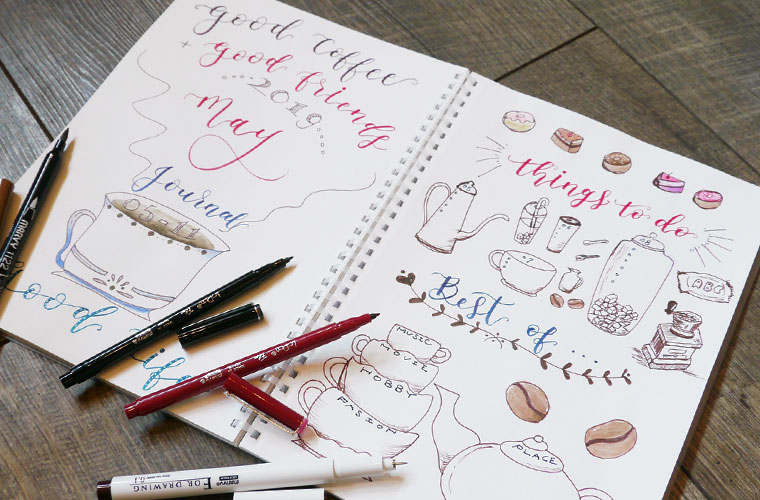 good coffee
+ good friends
2019
May
Journal
05-11
good life
things to do
Best of....
MUSIC
MOVIE
HOBBY
FASION
PLACE
MARVY 1122
FOR DRAWING